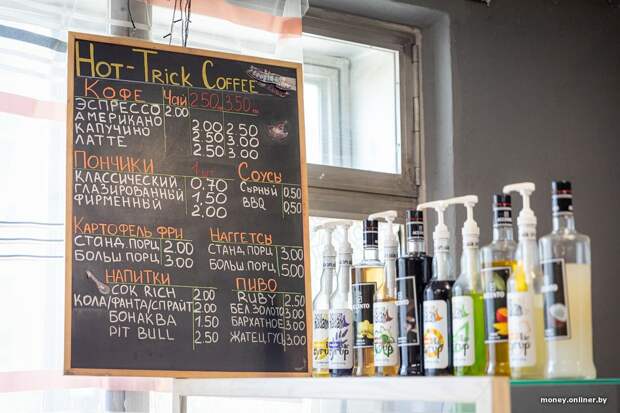 Hot-Trick Coffee
КОФЕ ЧАЙ 2.50 3.50
ЭСПРЕССО 2.00
АМЕРИКАНО 2.00 2.50
КАПУЧИНО 2.50 3.00
ЛАТТЕ 2.50 3.00
ПОНЧИКИ
КЛАССИЧЕСКИЙ 0.70
ГЛАЗИРОВАННЫЙ 1.50
ФИРМЕННЫЙ 2.00
СОУСЫ
СЫРНЫЙ 0,50
BBQ 0,50
КАРТОФЕЛЬ ФРИ
СТАНД.ПОРЦ 2.00
БОЛЬШ ПОРЦ 3.00
НАГГЕТСЫ
СТАНД.ПОРЦ. 3.00
БОЛЬШ.ПОРЦ 5.00
НАПИТКИ
СОК RICH 2.00
КОЛА/ФАНТА/СПРАЙТ 2.00
БОНАКВА 1.50
PIT BULL 2.50
ПИВО
RUBY 2.50
БЕЛ ЗОЛОТО 3.00
БАРХАТНОЕ 3.00
ЖАТЕЦ.ГУСЬ 3.00
money.onliner.by